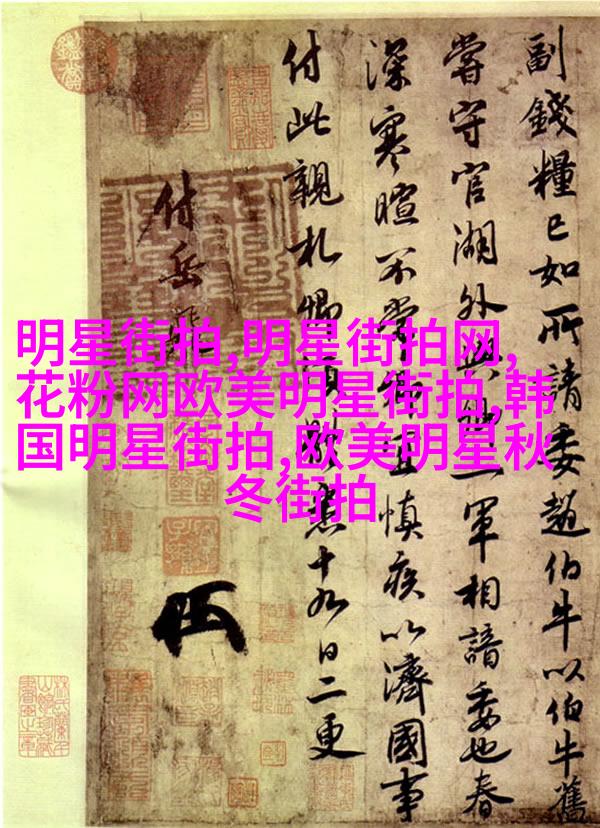 明星街拍,明星街拍网,
花粉网欧美明星街拍,韩
国明星街拍,欧美明星秋
冬街拍
副錢糧已如所請委趙伯牛以伯牛舊
嘗守官湖外與一軍相諳委也春
深寒暄不常宜慎疾以濟國事
付此親札卿須悉十九日二更
付岳飛